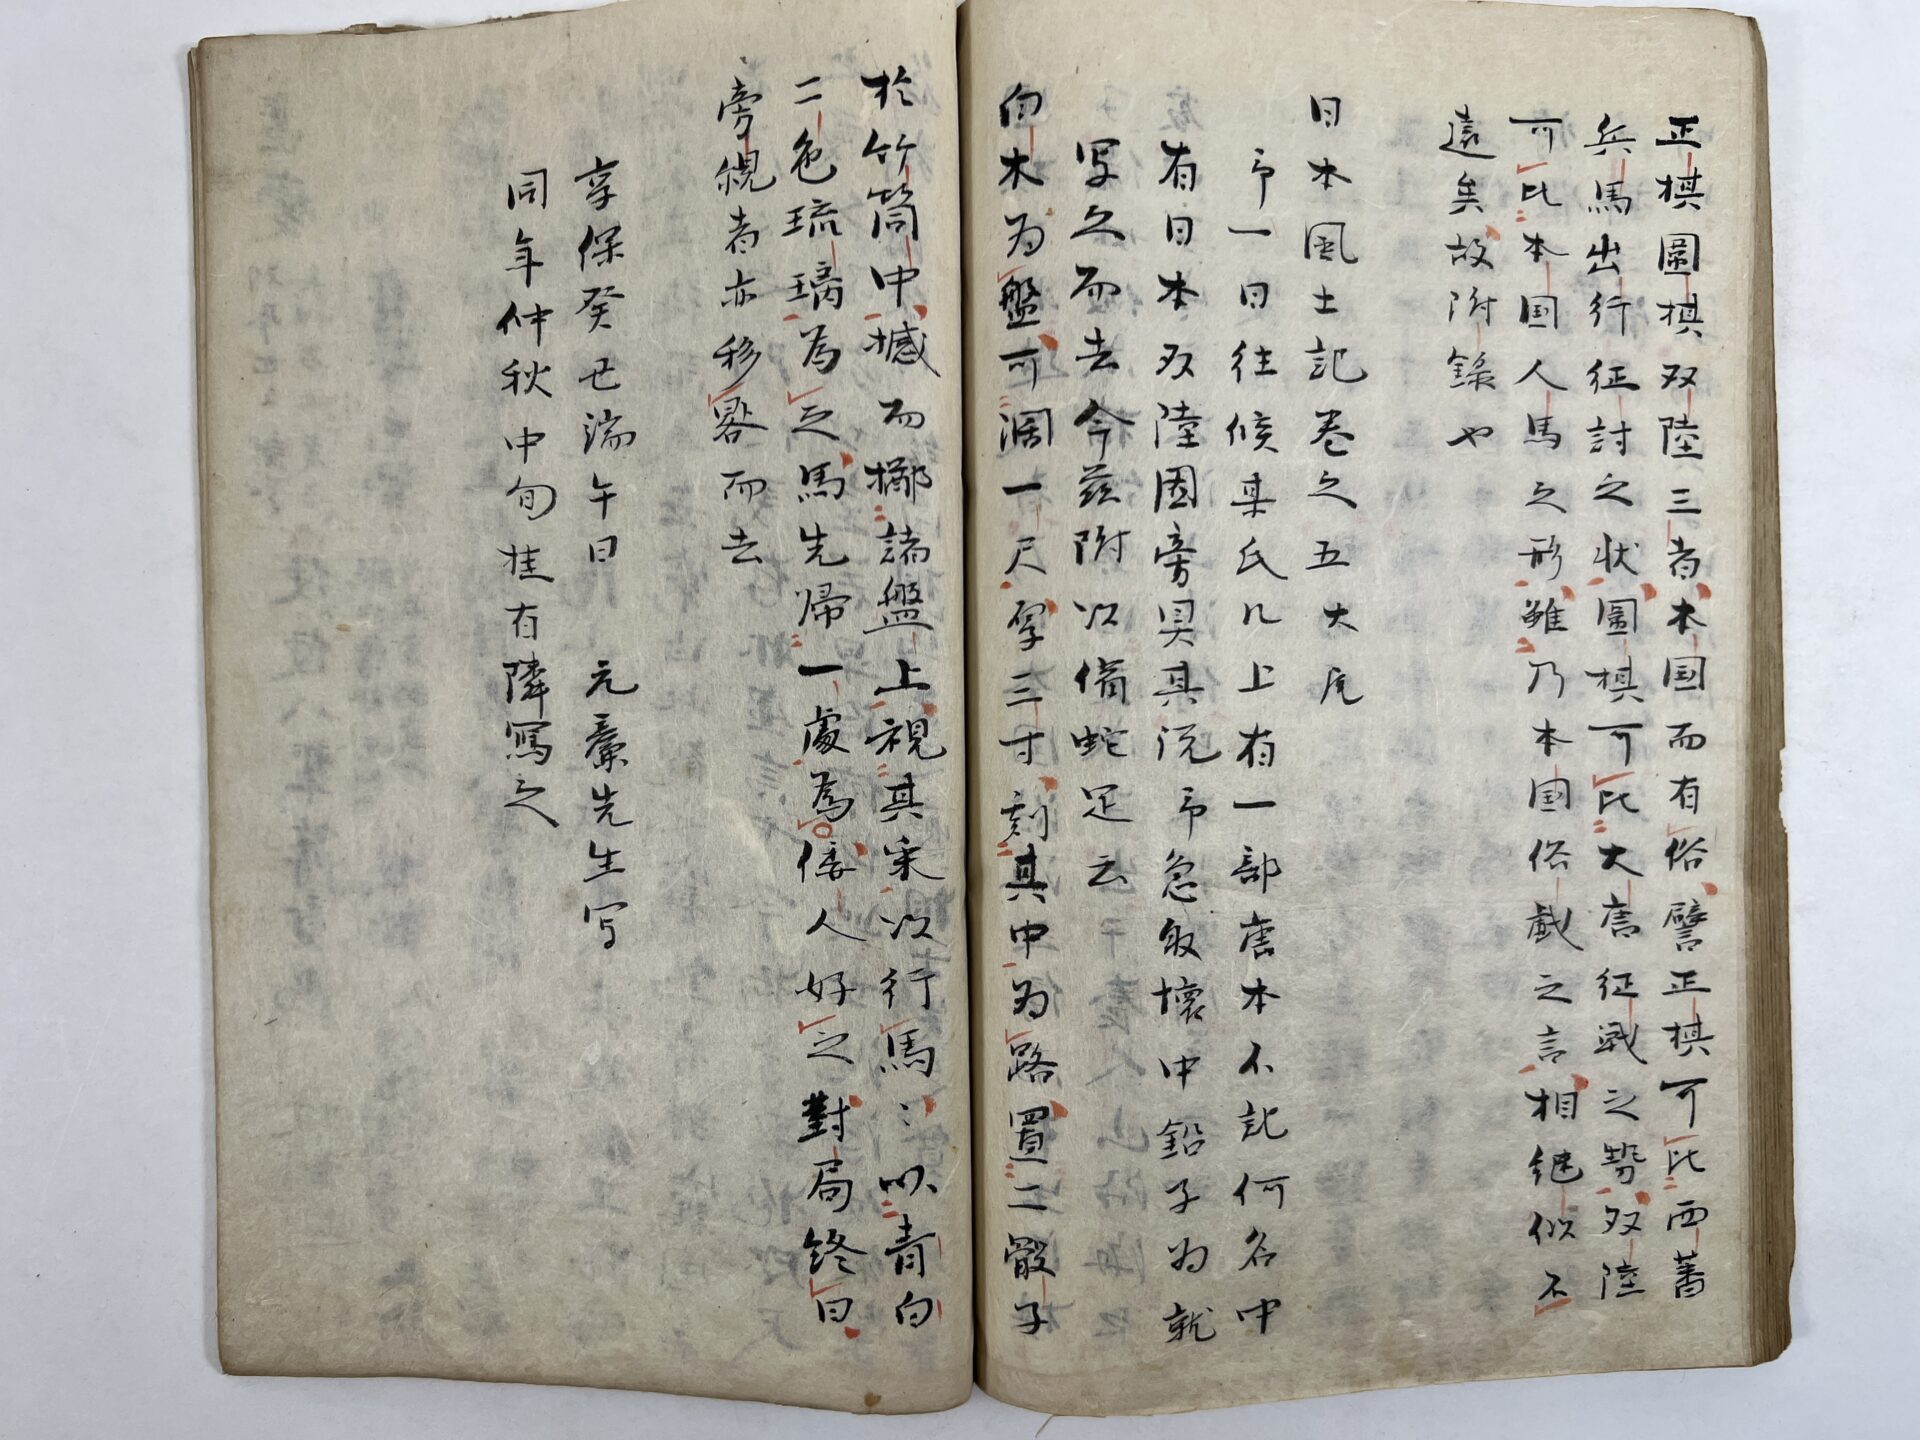 正棋圍棋双陸三者本国而有俗譬正棋可比西蕃
兵馬出行征討之状圍棋可比大唐征戦之勢双陸
可比本国人馬之形雖乃本国俗戯之言相継似不
遠矣故附錄也
日本風土記巻之五大尾
予一日往候某氏几上有一部唐本不記何名中
有日本双陸図旁具其説予急取懐中鉛子為就
写之而去今茲附以備蛇足云
向木为盤可濶一尺厚三寸刻其中为路置二骰子
於竹筒中撼而擲諸盤上視其采以行馬〻以青白
二色琉璃為之馬先帰一處為倭人好之對局終日
旁䙿者亦移晷而去
享保癸丑端午日 元先生写
同年仲秋中旬桂有隣寫之